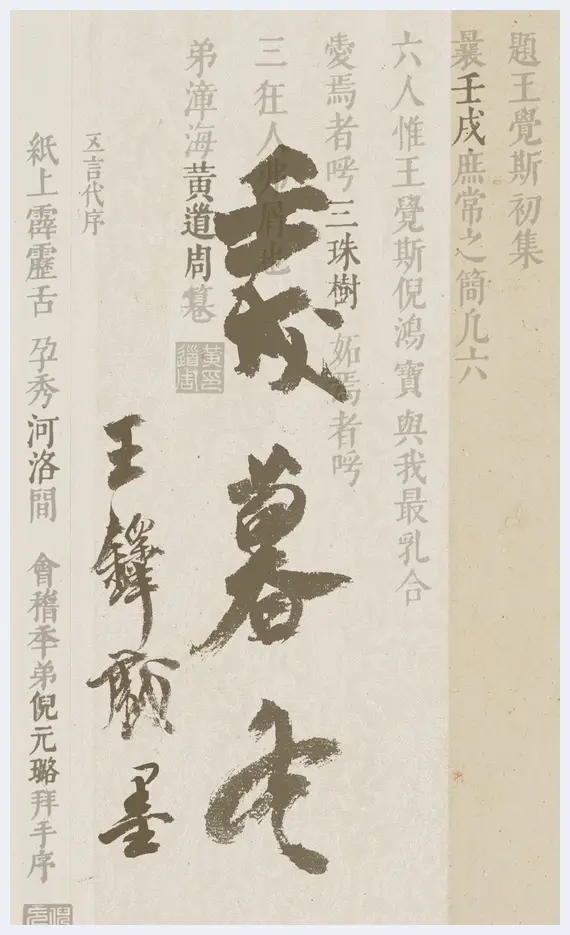 題王覺斯初集
曩壬戌庶常之簡凡六
六人惟王覺斯倪鴻寶與我最乳合
愛焉者呼三珠樹 妬焉者呼
三狂人弗屑也
壬戌暮冬
弟漳海黃道周篹
黃道周印
王鐸 墨
五言代序
紙上霹靂舌 孕秀河洛間 會稽季弟倪元璐拜手序